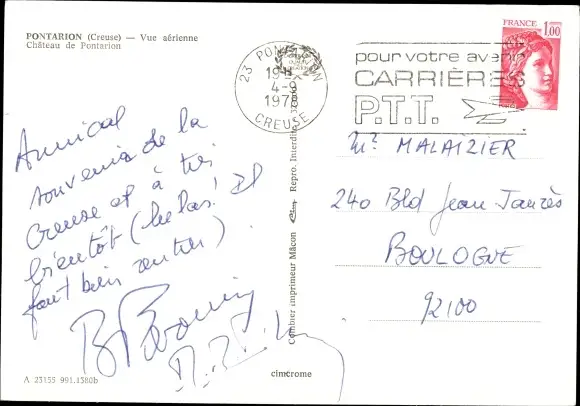 PONTARION (Creuse) — Vue aérienne
Château de Pontarion
FRANCE
1,00
23 PONTARION
19H
4-9
CREUSE
pour votre avenir
CARRIÈRES
P.T.T.
Amical
souvenir de la
Creuse et à très
bientôt (hélas! Il
faut bien rentrer)
Mr MALAIZIER
240 Bld Jean Jaurès
BOULOGNE
92100
Combier imprimeur Mâcon
Repro. Interdite
cimcrome
A 23155 991.1380b